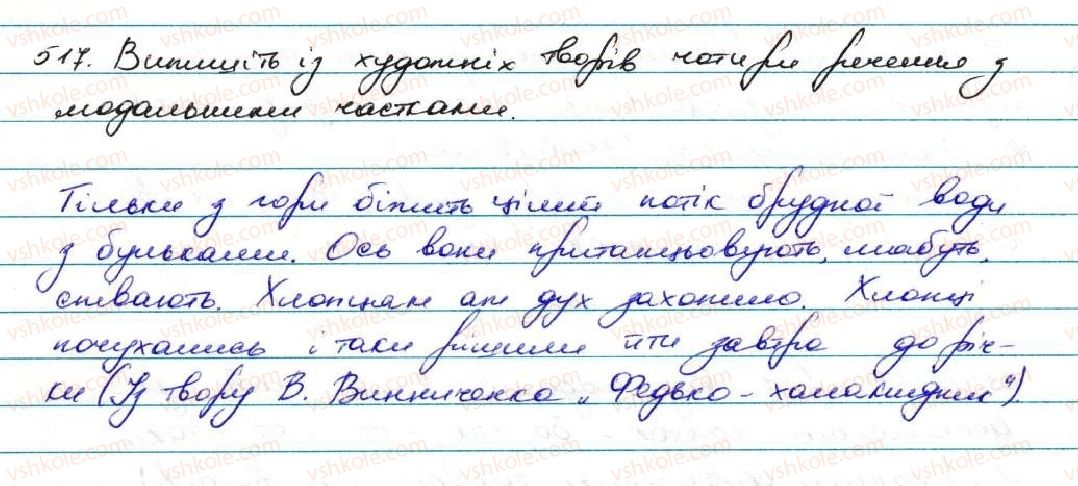 517. Випишіть із художніх творів чотири речення з
модальними частками.
Тільки з гори біжить цілий потік брудної води
з бульками. Ось вони пританцьовують, мабуть,
співають. Хлопцам аж дух захопило. Хлопці
почухались і таки рішили йти завтра до річ-
ки (Із твору В. Винниченка „Федько-халамидник")